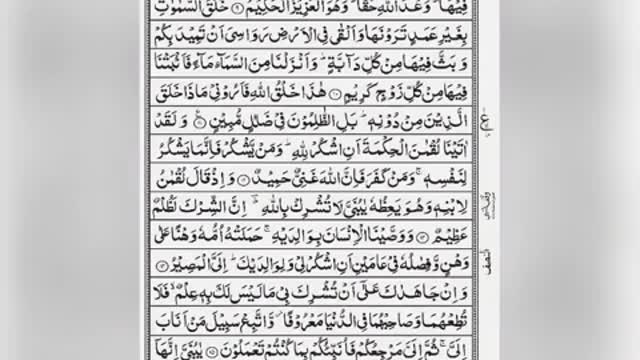 فِيْهَا ؕ وَعْدَ اللّٰهِ حَقًّا ؕ وَهُوَ الْعَزِيْزُ الْحَكِيْمُ ۹ خَلَقَ السَّمٰوٰتِ
بِغَيْرِ عَمَدٍ تَرَوْنَهَا وَاَلْقٰى فِى الْاَرْضِ رَوَاسِىَ اَنْ تَمِيْدَ بِكُمْ
وَ بَثَّ فِيْهَا مِنْ كُلِّ دَآبَّةٍ ؕ وَاَنْزَلْنَا مِنَ السَّمَآءِ مَآءً فَاَنْۢبَتْنَا
فِيْهَا مِنْ كُلِّ زَوْجٍ كَرِيْمٍ ۱۰ هٰذَا خَلْقُ اللّٰهِ فَاَرُوْنِىْ مَاذَا خَلَقَ
الَّذِيْنَ مِنْ دُوْنِهٖ ؕ بَلِ الظّٰلِمُوْنَ فِىْ ضَلٰلٍ مُّبِيْنٍ ۱۱ وَ لَقَدْ
اٰتَيْنَا لُقْمٰنَ الْحِكْمَةَ اَنِ اشْكُرْ لِلّٰهِ ؕ وَمَنْ يَّشْكُرْ فَاِنَّمَا يَشْكُرُ
لِنَفْسِهٖ ۚ وَمَنْ كَفَرَ فَاِنَّ اللّٰهَ غَنِىٌّ حَمِيْدٌ ۱۲ وَ اِذْ قَالَ لُقْمٰنُ
لِابْنِهٖ وَهُوَ يَعِظُهٗ يٰبُنَىَّ لَا تُشْرِكْ بِاللّٰهِ ؕ اِنَّ الشِّرْكَ لَظُلْمٌ
عَظِيْمٌ ۱۳ وَوَصَّيْنَا الْاِنْسَانَ بِوَالِدَيْهِ ۚ حَمَلَتْهُ اُمُّهٗ وَهْنًا عَلٰى
وَهْنٍ وَّفِصٰلُهٗ فِىْ عَامَيْنِ اَنِ اشْكُرْ لِىْ وَلِوَالِدَيْكَ ؕ اِلَىَّ الْمَصِيْرُ ۱۴
وَ اِنْ جَاهَدٰكَ عَلٰٓى اَنْ تُشْرِكَ بِىْ مَا لَيْسَ لَكَ بِهٖ عِلْمٌ ۙ فَلَا
تُطِعْهُمَا وَصَاحِبْهُمَا فِى الدُّنْيَا مَعْرُوْفًا ؗ وَّاتَّبِعْ سَبِيْلَ مَنْ اَنَابَ
اِلَىَّ ۚ ثُمَّ اِلَىَّ مَرْجِعُكُمْ فَاُنَبِّئُكُمْ بِمَا كُنْتُمْ تَعْمَلُوْنَ ۱۵ يٰبُنَىَّ اِنَّهَاۤ
النصف